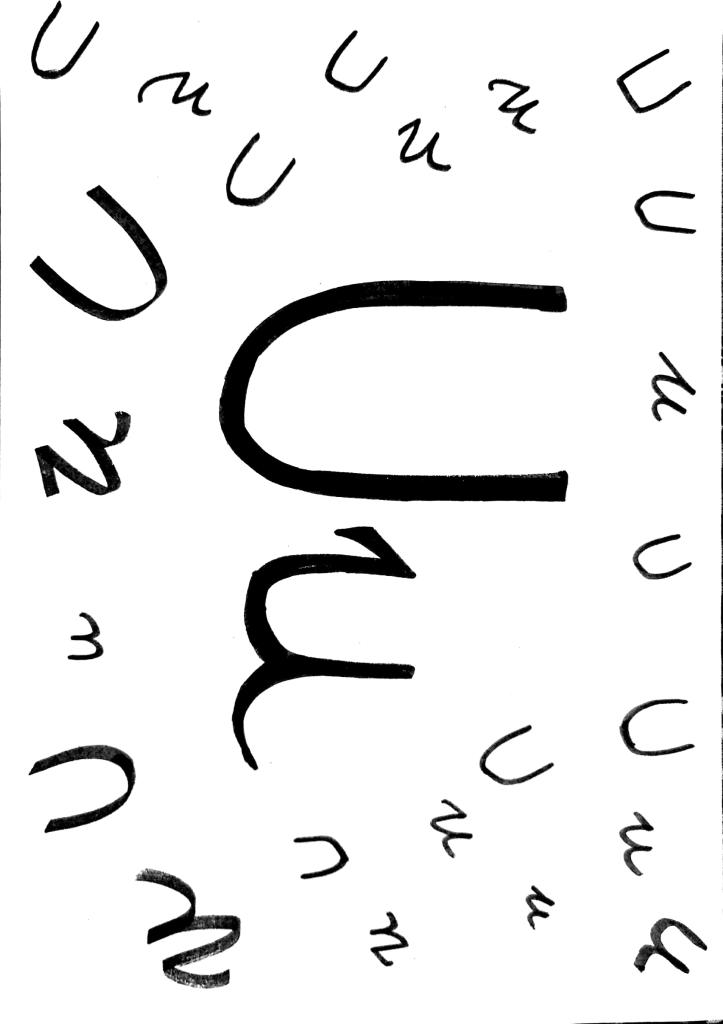 U U u U U u u
u U u
u u
U u
U u
U U
u u
U U u u U